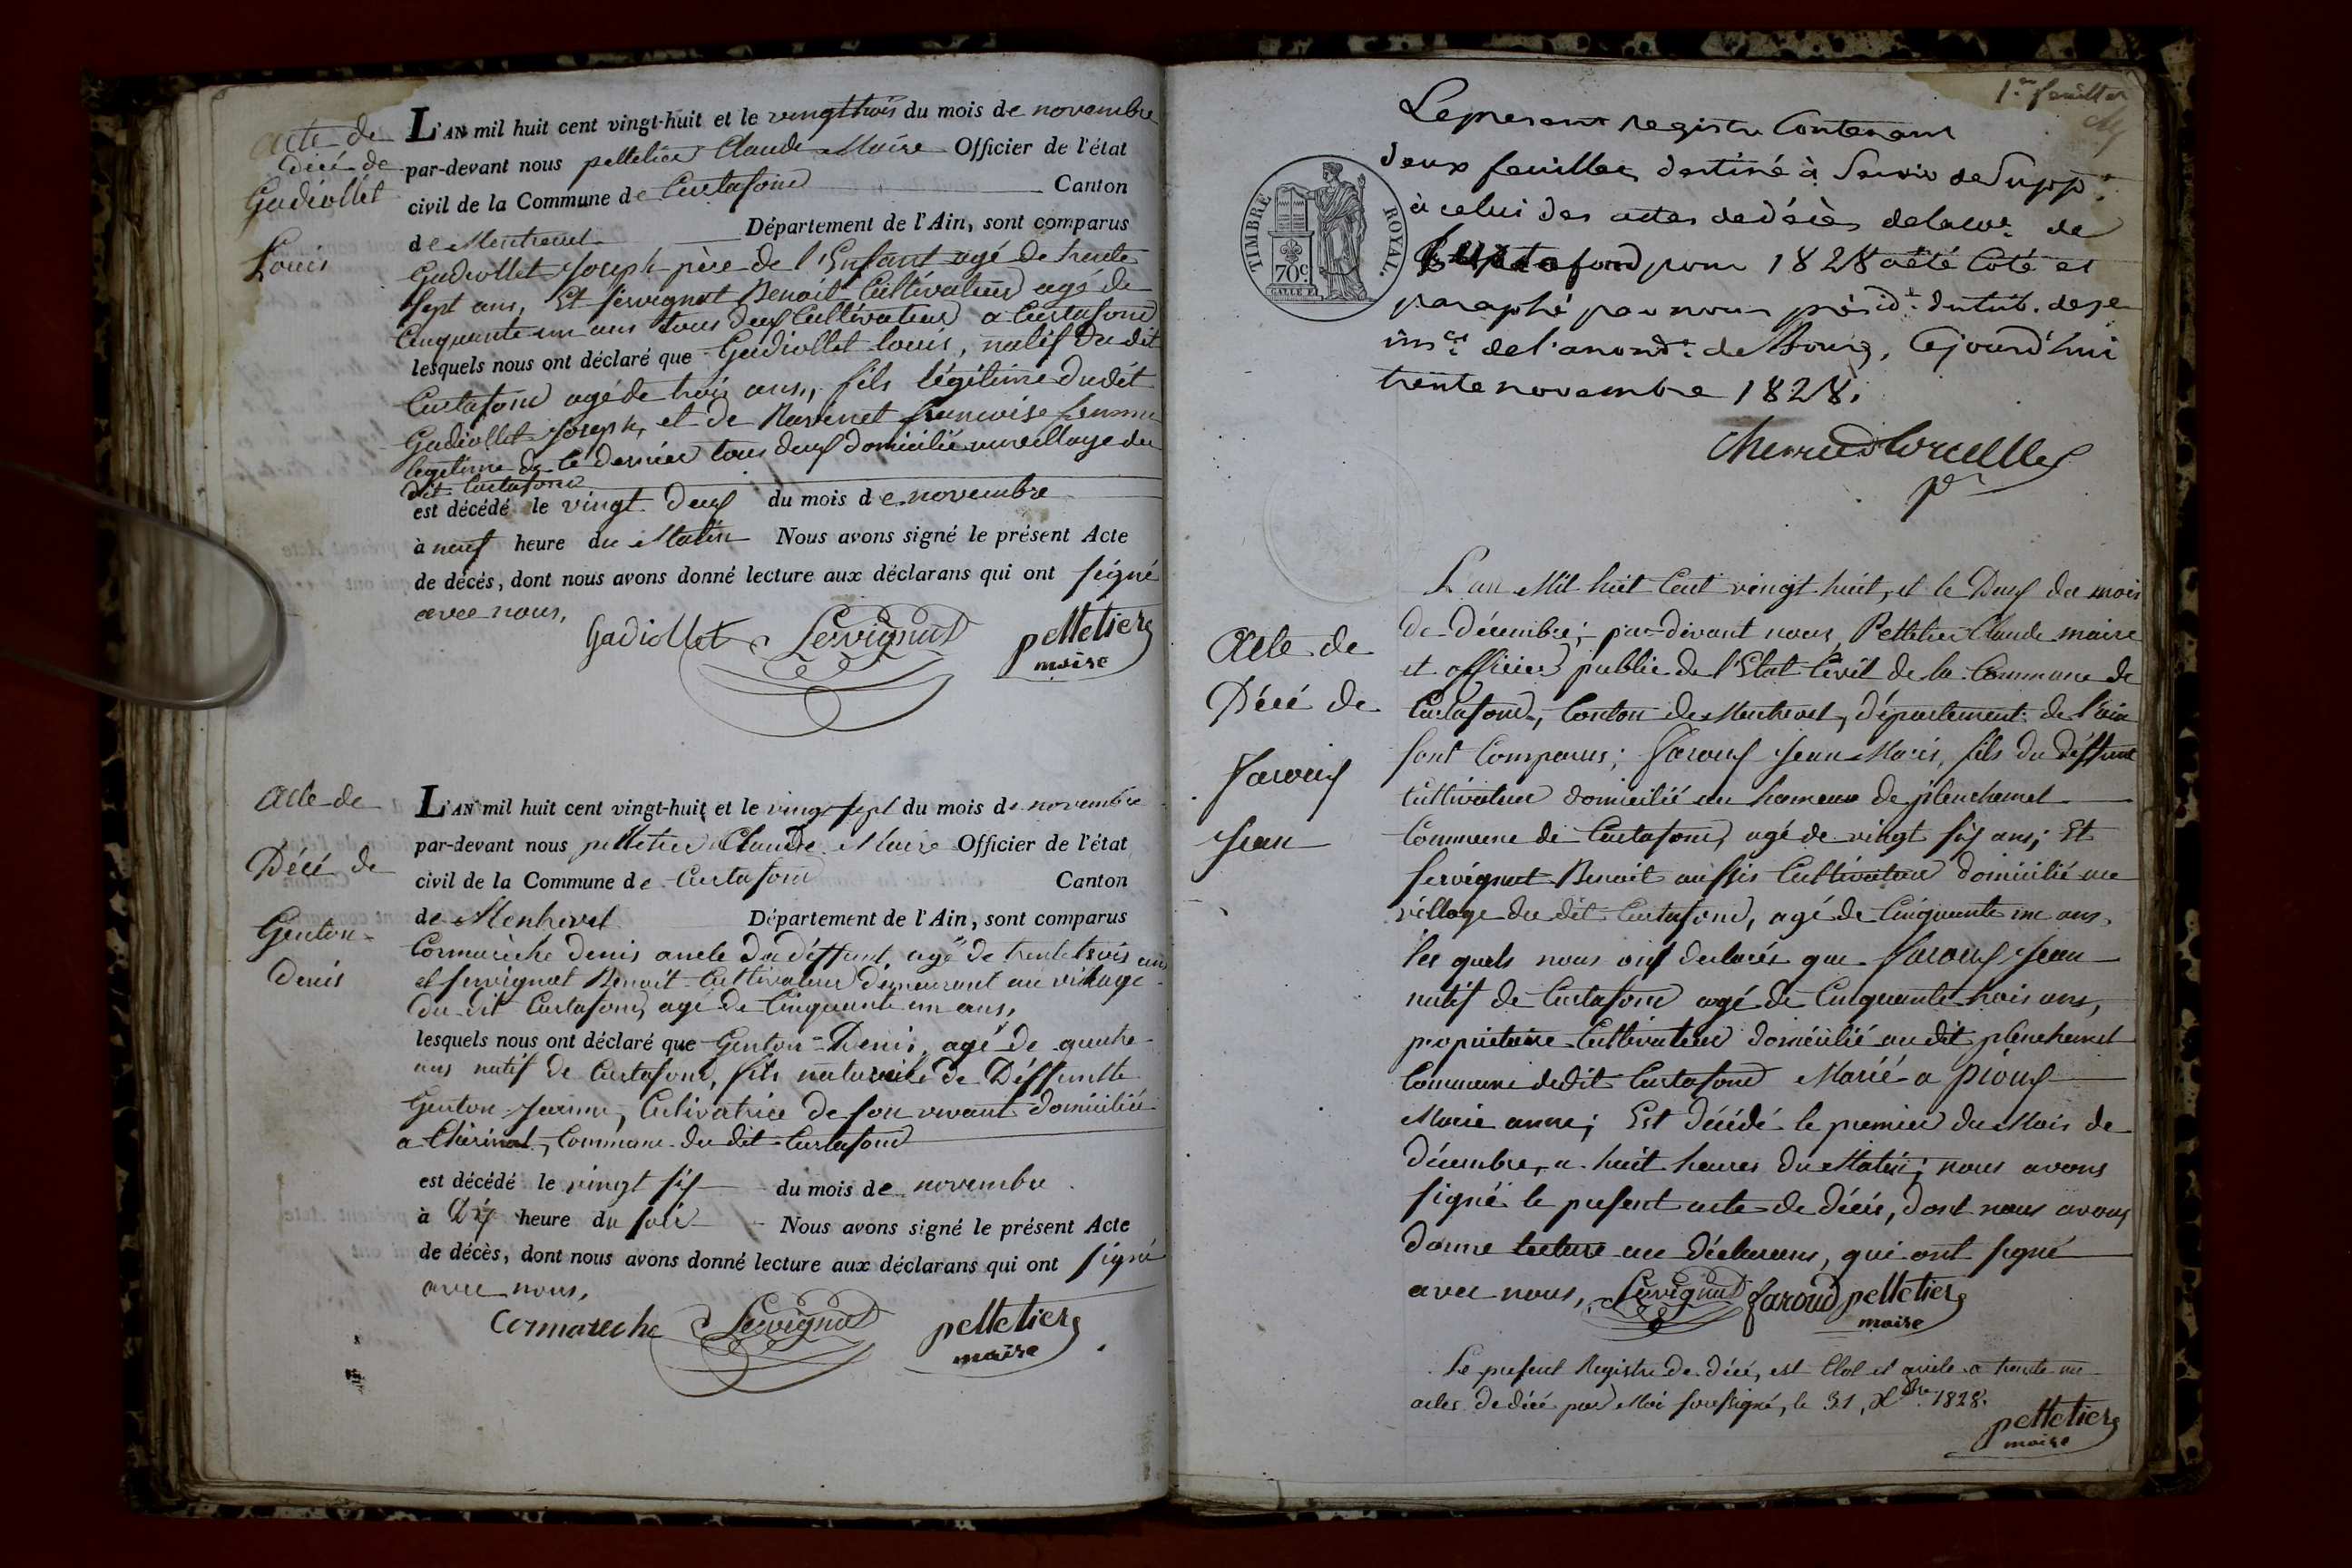 acte de
décé de
Gadiollet
Louis
L'AN mil huit cent vingt-huit et le vingt trois du mois de novembre
par-devant nous pelletier Claude Maire Officier de l'état
civil de la Commune de Curtafond Canton
de Montrevel Département de l'Ain, sont comparus
Gadiollet Joseph père de l'Enfant agé de trente
sept ans, Et servignat Benoit Cultivateur agé de
Cinquante un ans tous deux Cultivateur a Curtafond
lesquels nous ont déclaré que Gadiollet louis, natif du dit
Curtafond agé de trois ans, fils légitime dudit
Gadiollet Joseph, et de Ravenet francoise femme
légitime de ce dernier tous deux domicilié au village du
dit Curtafond
est décédé le vingt deux du mois de novembre
à neuf heure du Matin Nous avons signé le présent Acte
de décès, dont nous avons donné lecture aux déclarans qui ont signé
avec nous,
Gadiollet Servignat pelletier
maire
Acte de
Décé de
Genton
Denis
L'AN mil huit cent vingt-huit et le vingt sept du mois de novembre
par-devant nous pelletier Claude Maire Officier de l'état
civil de la Commune de Curtafond Canton
de Montrevel Département de l'Ain, sont comparus
Cormarèche denis oncle du déffunt, agé de trente trois ans
et servignat Benoit Cultivateur demeurant au village
du dit Curtafond, agé de Cinquante un ans,
lesquels nous ont déclaré que Genton Denis, agé de quatre
ans natif de Curtafond, fils naturelle de Déffuntte
Genton Jeanne, Cultivatrice de son vivant domiciliée
a Chérinal, Commune du dit Curtafond
est décédé le vingt six du mois de novembre
à dix heure du soir Nous avons signé le présent Acte
de décès, dont nous avons donné lecture aux déclarans qui ont signé
avec nous,
Cormareche Servignat pelletier
maire
1er feuillet
Le present registre Contenant
deux feuilles destiné à Servir de Supp.t
à celui des actes de décès de la coe. de
Curtafond pour 1828 a été Coté et
paraphé par nous présidt. du trib. de 1e
insce. de l'arrondt. de Bourg, Cejourd'hui
trente novembre 1828.
TIMBRE ROYAL.
70c
Acte de
Décé de
Faroux
Jean
L'an Mil huit Cent vingt huit, et le Deux du mois
de décembre; par-divant nous, Pelletier Claude maire
et officier public de l'Etat Civil de la Commune de
Curtafond, Canton de Montrevel, département de l'ain
sont Comparus; Faroux Jean Marie, fils du déffunt
Cultivateur domicilié au hameau de plenchamel
Commune de Curtafond, agé de vingt six ans; Et
servignat Benoit aussis Cultivateur domicilié au
village du dit Curtafond, agé de Cinquante un ans,
les quels nous ont declarés que Faroux Jean
natif de Curtafond agé de Cinquante trois ans,
propriétaire Cultivateur domicilié au dit plenchamel
Commune dedit Curtafond Marié a pioux
Marie anne; Est décédé le premier du Mois de
décembre, a huit heures du Matin; nous avons
signé le present acte de décés, dont nous avons
donné lecture au déclarans, qui ont signé
avec nous, Servignat faroud pelletier
maire
Le present Registre de décé, est Clot et arrêté a trente un
actes de décé par Moi soussigné, le 31, Xbre 1828.
pelletier
maire